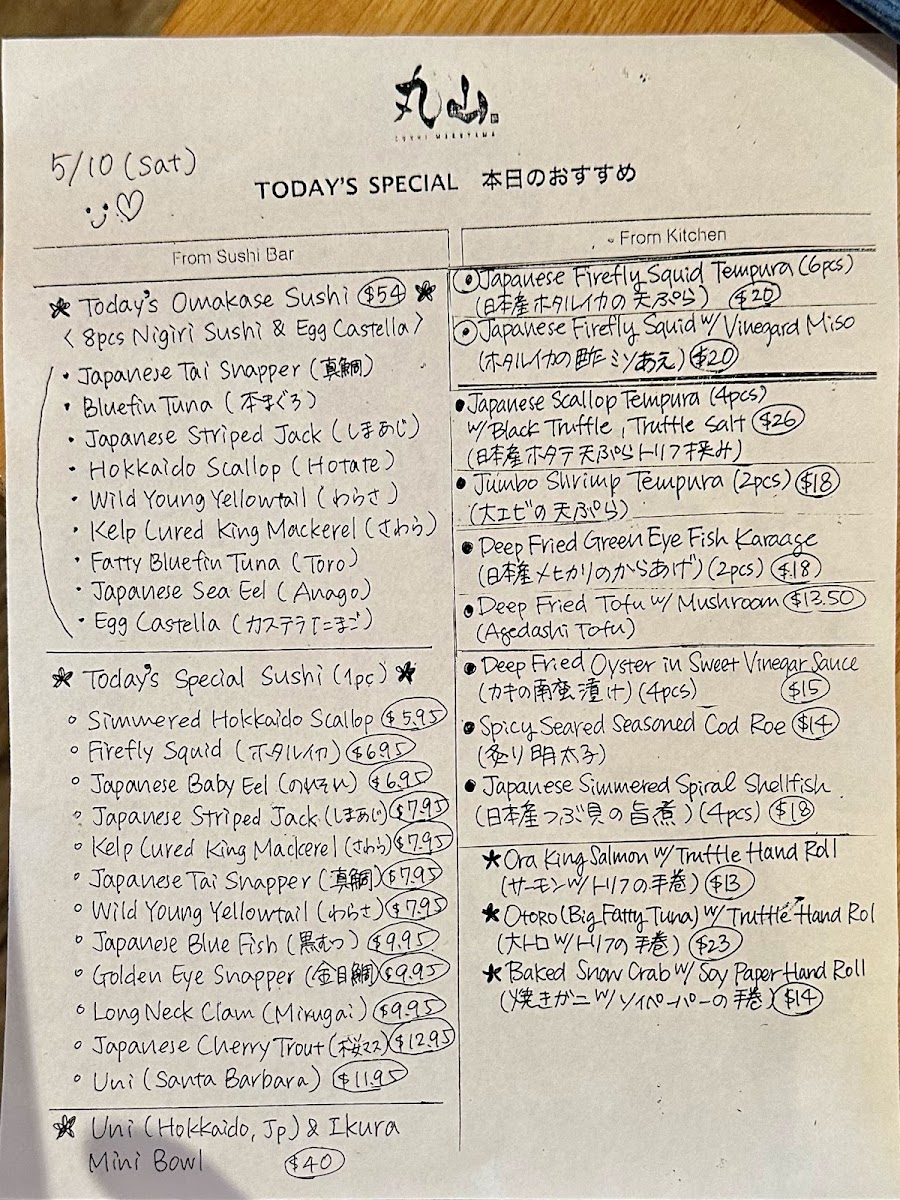 丸山
SUSHI MARUYAMA
5/10 (Sat)
TODAY'S SPECIAL 本日のおすすめ
From Sushi Bar
★ Today's Omakase Sushi $54 ★
〈8pcs Nigiri Sushi & Egg Castella〉
・Japanese Tai Snapper (真鯛)
・Bluefin Tuna (本まぐろ)
・Japanese Striped Jack (しまあじ)
・Hokkaido Scallop (Hotate)
・Wild Young Yellowtail (わらさ)
・Kelp Cured King Mackerel (さわら)
・Fatty Bluefin Tuna (Toro)
・Japanese Sea Eel (Anago)
・Egg Castella (カステラたまご)
★ Today's Special Sushi (1pc) ★
○ Simmered Hokkaido Scallop $5.95
○ Firefly Squid (ホタルイカ) $6.95
○ Japanese Baby Eel (のれそれ) $6.95
○ Japanese Striped Jack (しまあじ) $7.95
○ Kelp Cured King Mackerel (さわら) $7.95
○ Japanese Tai Snapper (真鯛) $7.95
○ Wild Young Yellowtail (わらさ) $7.95
○ Japanese Blue Fish (黒むつ) $9.95
○ Golden Eye Snapper (金目鯛) $9.95
○ Long Neck Clam (Mirugai) $9.95
○ Japanese Cherry Trout (桜マス) $12.95
○ Uni (Santa Barbara) $11.95
★ Uni (Hokkaido, Jp) & Ikura
Mini Bowl $40
From Kitchen
◉ Japanese Firefly Squid Tempura (6pcs)
(日本産ホタルイカの天ぷら) $20
◉ Japanese Firefly Squid w/ Vinegard Miso
(ホタルイカの酢ミソあえ) $20
● Japanese Scallop Tempura (4pcs)
w/ Black Truffle, Truffle Salt $26
(日本産ホタテ天ぷらトリフ挟み)
● Jumbo Shrimp Tempura (2pcs) $18
(大エビの天ぷら)
● Deep Fried Green Eye Fish Karaage
(日本産メヒカリのからあげ) (2pcs) $18
● Deep Fried Tofu w/ Mushroom $13.50
(Agedashi Tofu)
● Deep Fried Oyster in Sweet Vinegar Sauce
(カキの南蛮漬け) (4pcs) $15
● Spicy Seared Seasoned Cod Roe $14
(炙り明太子)
● Japanese Simmered Spiral Shellfish
(日本産つぶ貝の旨煮) (4pcs) $18
★ Ora King Salmon w/ Truffle Hand Roll
(サーモンw/トリフの手巻) $13
★ Otoro (Big Fatty Tuna) w/ Truffle Hand Rol
(大トロw/トリフの手巻) $23
★ Baked Snow Crab w/ Soy Paper Hand Roll
(焼きガニw/ソイペーパーの手巻) $14